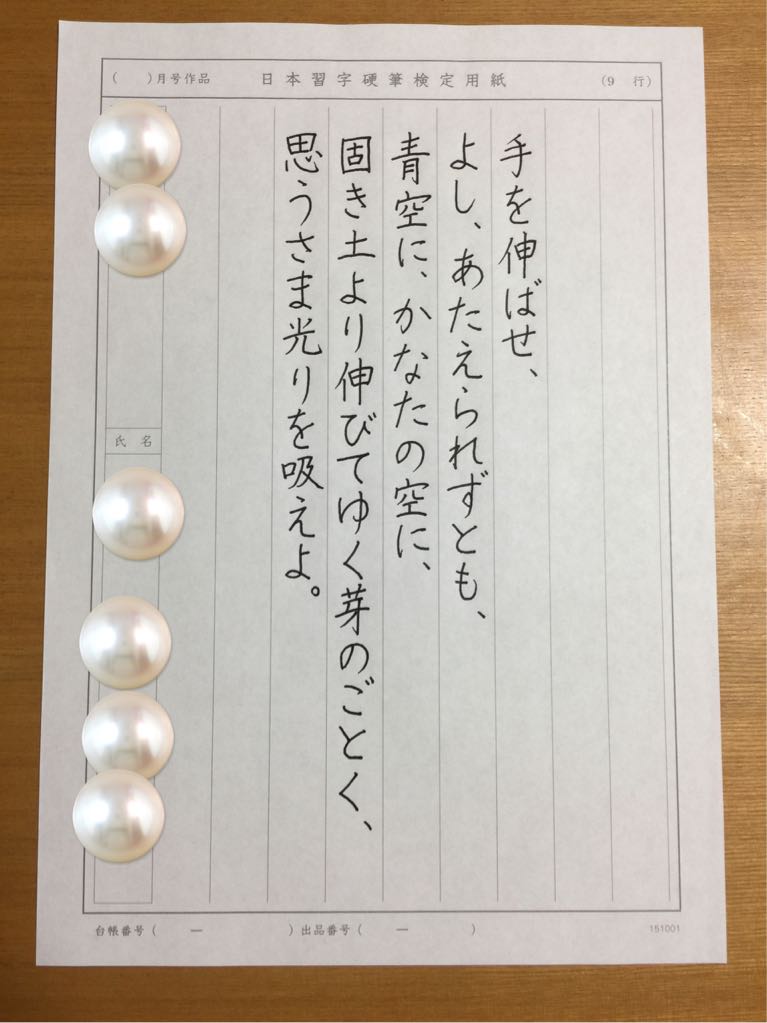 （　　）月号作品　日本習字硬筆検定用紙　（9　行）
手を伸ばせ、
よし、あたえられずとも、
青空に、かなたの空に、
固き土より伸びてゆく芽のごとく、
思うさま光りを吸えよ。
氏名
台帳番号（　　ー　　）出品番号（　　ー　　）
151001